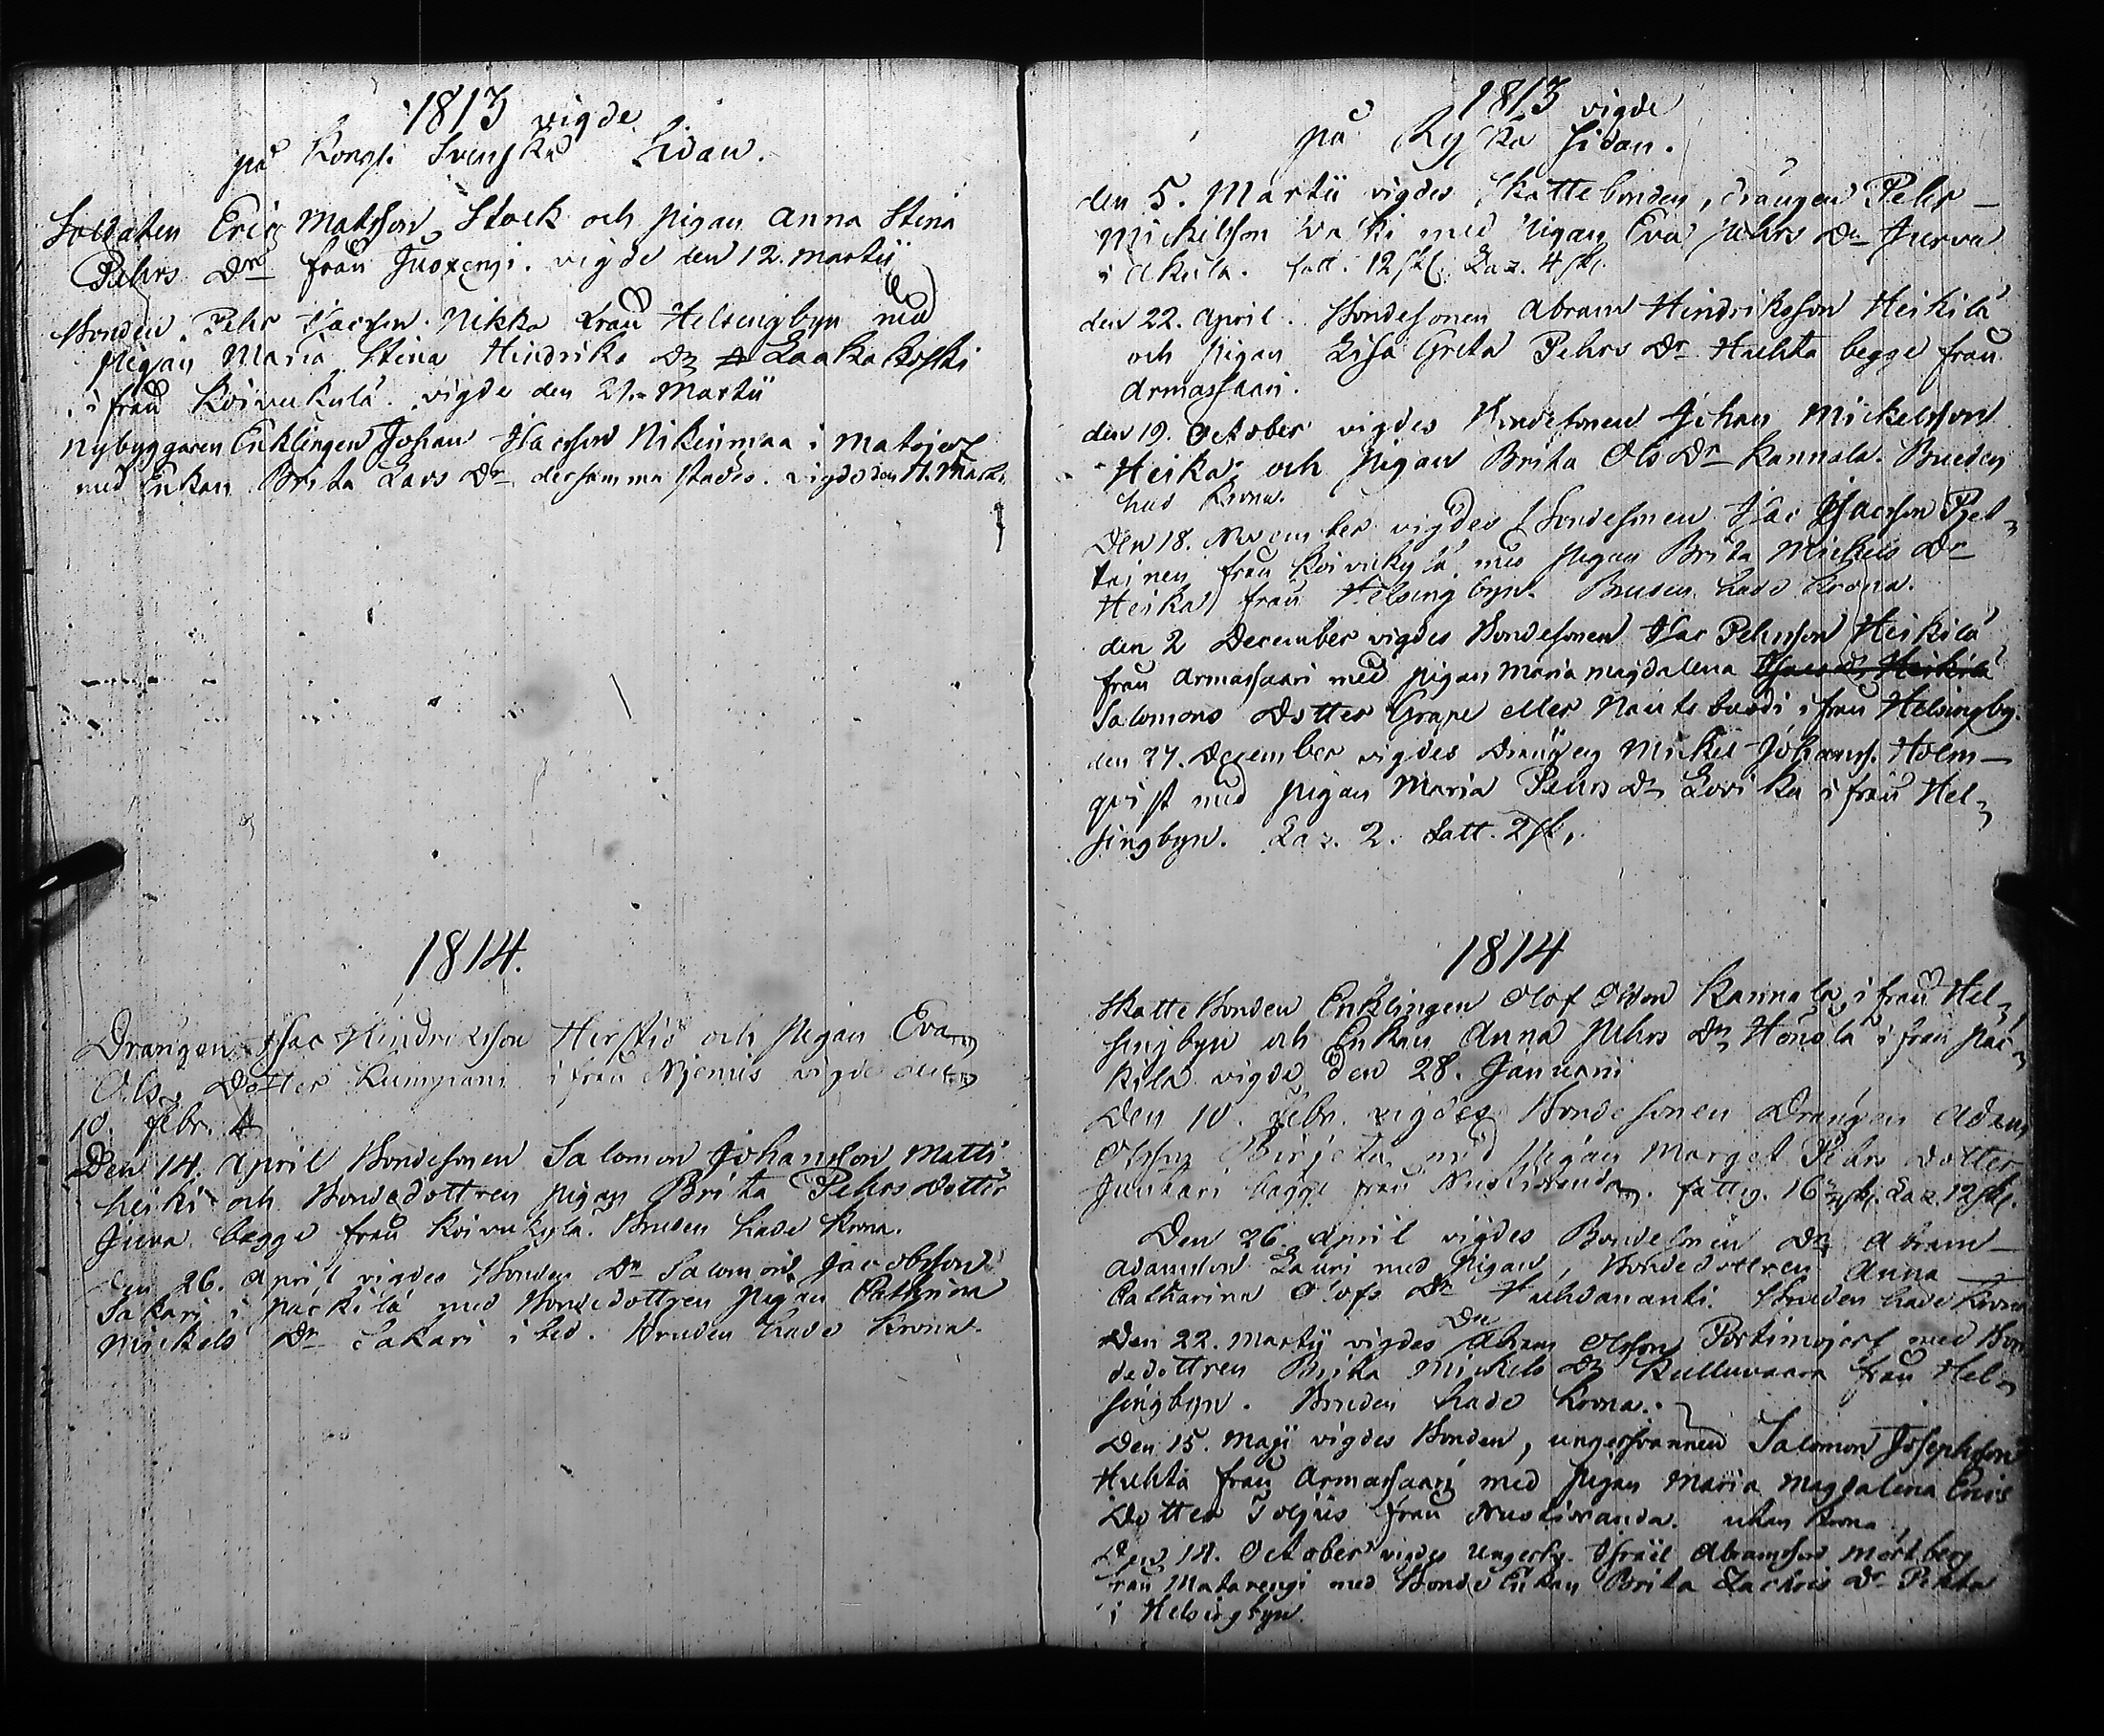 1813 vigde
på Kongl. Svenska Sidan.
Soldaten Eric Matsson Stock och pigan Anna Stina
Pehrs Dr från Juoxengi. vigde den 12. Martii
Bonden Pehr Isacsson Nikka från Helsingbyn med
pigan Maria Stina Hindriks Dr Laakakoski
ifrån Koivukylä. vigde den 21. Martii
Nybyggaren Enklingen Johan Isacsson Nikinmaa i Matojerf
med Enkan Brita Lars Dr dersammastädes. vigde den Mart.
1814.
Drängen Isac Hindricsson Herstiö och pigan Eva
Ols Dotter Kumpani ifrån Njemis vigde den
10. Febr.
Den 14. April Bondesonen Salomon Johansson Matti
heiki och Bondedottren pigan Brita Pehrs Dotter
Juva begge från Koivukylä. Bruden hade krona.
den 26. April vigdes Bonden Dr Salomon Jacobsson
Sakari i Päckilä med Bondedottren pigan Cathrina
Mickels Dr Sakari ibid. Bruden hade krona.
1813 vigde
på Ryska sidan.
den 5. Martii vigdes Skattebonden, drängen Pehr
Mickelsson med pigan Eva Pehrs Dr Jurva
i Akula. fatt. 12 sk. Laz. 4 sk.
den 22. April. Bondesonen Abram Hindriksson Heikilä
och pigan Lisa Greta Pehrs Dr Huhta begge från
Armassaari.
den 19. October vigdes Bondesonen Johan Mickelsson
Heika och pigan Brita Ols Dr Kannala. Bruden
had krona.
Den 18. November vigdes Bondesonen Isac Isacsson Pel
tainen från Koivukylä med pigan Brita Mickels Dr
Heika från Helsingbyn. Bruden hade krona.
den 2 December vigdes Bondesonen Isac Pehrsson Heikilä
från Armassaari med pigan Maria Magdalena Isacs Dr Heikilä
Salomons Dotter Grape eller Nautapuodi ifrån Helsingby.
den 27. December vigdes Drängen Mickel Johanss. Holm
qvist med pigan Maria Pehrs Dr Lovika ifrån Hel
singbyn. Laz. 2. Fatt. 2 sk,
1814
Skatte Bonden Enklingen Olof Olsson Kannala ifrån Hel
singbyn och Enkan Anna Pehrs Dr Hönölä ifrån Päc
kilä vigde den 28. Januarii
Den 10. Febr. vigdes Bondesonen Drängen Adam
Olsson Pirjeta med pigan Marget Pehrs Dotter
Junkari bägge från Nuotioranda. fattig. 16 sk. Laz. 12 sk.
Den 26. April vigdes Bondesonen Dr Abram
Adamsson Lauri med pigan, Bondedottren Anna
Catharina Olofs Dr Vuhdananti. Bruden hade krona
Den 22. Martii vigdes Dr Abram Olsson Portimojerf med Bon
dedottren Brita Mickels Dr Kulluvaara från Hel
singbyn. Bruden hade krona.
Den 15. Maji vigdes Bonden, ungersvennen Salomon Josephsson
Huhta från Armassaari med pigan Maria Magdalena Erics
Dotter Toljus från Nuotioranda. utan krona
Den 14. October vigdes Ungersv. Israel Abramsson Mörtberg
från Matarengi med Bonde Enkan Brita Zachris Dr Pekka
i Helsingbyn.